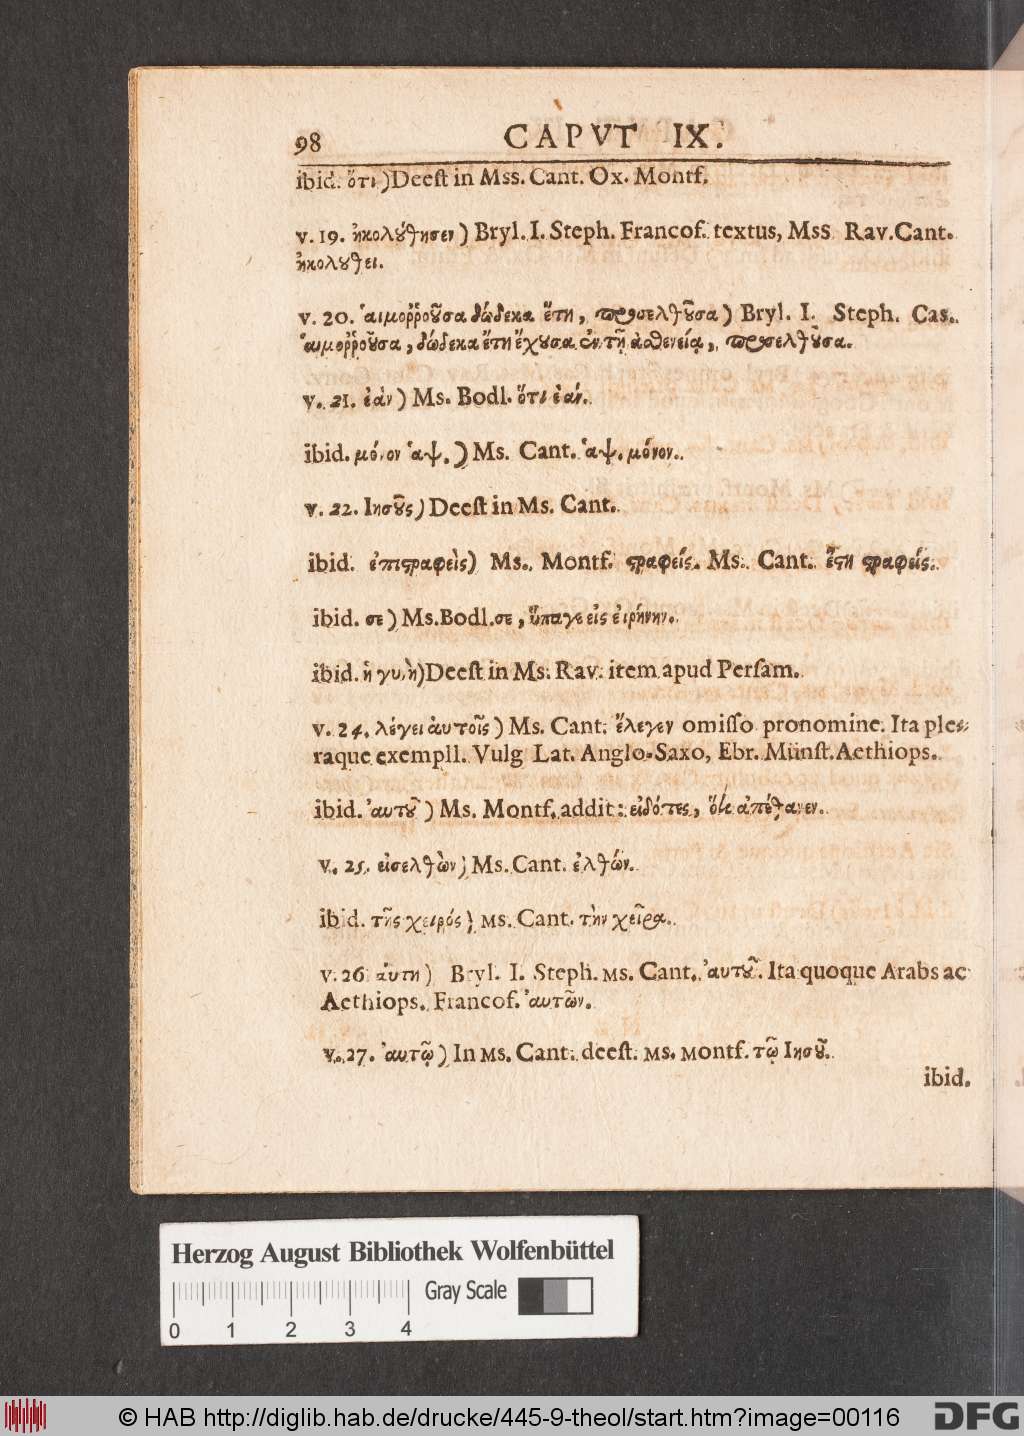 98 CAPVT IX.
ibid. ὅτι) Deeſt in Mss. Cant. Ox. Montf.
v. 19. ἠκολούθησεν) Bryl. I. Steph. Francof. textus, Mss Rav. Cant.
ἠκολούθει.
v. 20. ἁιμοῤῥοοῦσα δώδεκα ἔτη, προσελθοῦσα) Bryl. I. Steph. Cas.
ἁιμοῤῥοοῦσα, δώδεκα ἔτη ἔχουσα ἐν τῇ ἀσθενείᾳ, προσελθοῦσα.
v. 21. ἐὰν) Ms. Bodl. ὅτι ἐάν.
ibid. μόνον ἁψ.) Ms. Cant. ἁψ. μόνον.
v. 22. Ιησοῦς) Deeſt in Ms. Cant.
ibid. ἐπιστραφεὶς) Ms. Montf. στραφείς. Ms. Cant. ἔστη στραφείς.
ibid. σε) Ms. Bodl. σε, ὕπαγε εἰς ἐιρήνην.
ibid. ἡ γυνὴ) Deeſt in Ms. Rav. item apud Perſam.
v. 24. λέγει ἀυτοῖς) Ms. Cant. ἔλεγεν omiſſo pronomine. Ita ple-
raque exempll. Vulg Lat. Anglo-Saxo, Ebr. Münſt. Aethiops.
ibid. ἀυτοῦ) Ms. Montf. addit: εἰδότες, ὅτι ἀπέθανεν.
v. 25. εἰσελθὼν) Ms. Cant. ἐλθών.
ibid. τῆς χειρός) Ms. Cant. τὴν χεῖρα.
v. 26 ἁύτη) Bryl. I. Steph. Ms. Cant. ἀυτοῦ. Ita quoque Arabs ac
Aethiops. Francof. ἀυτῶν.
v. 27. ἀυτῷ) In Ms. Cant. deeſt. Ms. Montf. τῷ Ιησοῦ.
ibid.
Herzog August Bibliothek Wolfenbüttel
Gray Scale
0 1 2 3 4
© HAB http://diglib.hab.de/drucke/445-9-theol/start.htm?image=00116 DFG